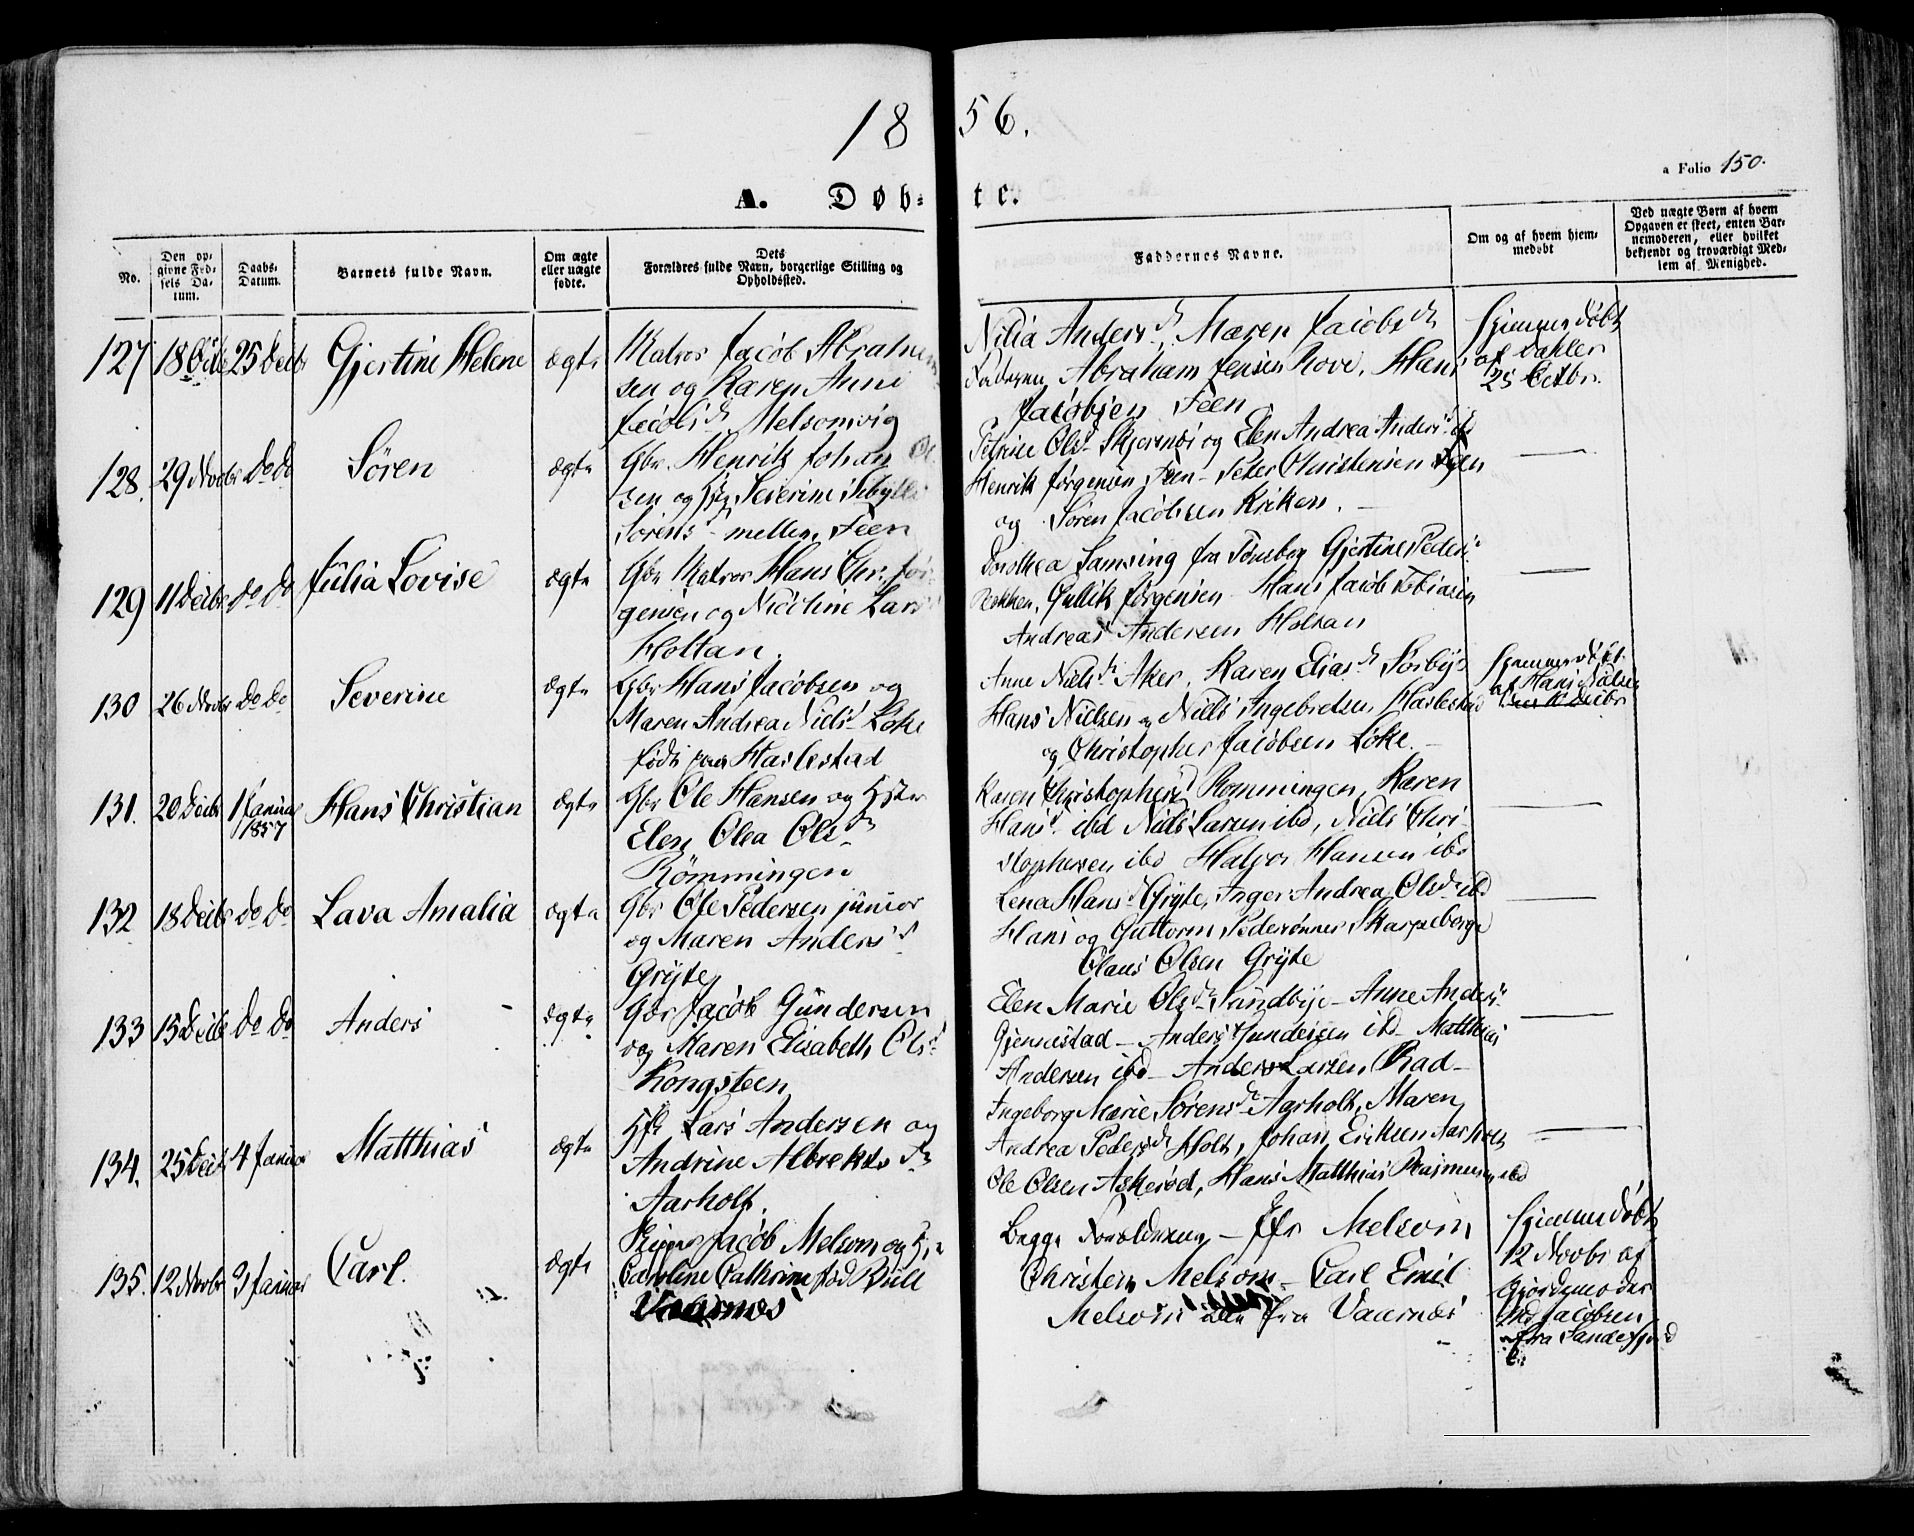 1856.
a Folio 150.
A. Døbte.
No.
Den opgivne Fødsels Datum.
Daabs-Datum.
Barnets fulde Navn.
Om ægte eller uægte fødte.
Dets Forældres fulde Navn, borgerlige Stilling og Opholdssted.
Faddernes Navne.
Om og af hvem hjemmedøbt
Ved uægte Børn af hvem Opgaven er skeet, enten Barnemoderen, eller hvilket bekjendt og troværdigt Medlem af Menighed.
127 25 Decbr Gjertine Helene ægte
Matros Jacob Abraham
sen og Karen Anne
Jacobsd. Melsomvig
Nilia Andersd., Maren Jacobsd.
Abraham Jensen Hove, Hans
Jacobsen Feen
Hjemmedøbt
af Dahler
25 Octbr.
128. 29 Novbr Do Do Søren ægte
Gbr. Henrik Johan
sen og Severine Sibylle
Sørensd. mellem Feen
Petrine Olsd. Skjersnæs og Elen Andrea Andersd.
Henrik Jørgensen Feen - Peter Christensen Feen
og Søren Jacobsen Kriken.
129 11 Decbr Do Do Julia Lovise ægte
Gbr Matros Hans Chr. Jør-
gensen og Nicoline Lars
Holtan.
Dorthea Samsing fra Tønsberg Gjertine Peders
Bekken, Gullik Jørgensen Hans Jacob Tobiasen
Andreas Andersen Holtan
130 26 Novbr Do Do Severine ægte
Gbr Hans Jacobsen og
Maren Andrea Nielsd. Løke
født paa Haslestad
Anne Nielsd. Aker, Karen Eliasd. Sørbye
Hans Nielsen og Niels Ingebretsen Haslestad
og Christopher Jacobsen Løke.
Hjemmedøbt
af Hans Nielsen
131. 20 Decbr 1 Januar 1857 Hans Christian ægte
Gbr Ole Hansen og Hstr
Elen Olea Olsd.
Rømmingen
Karen Christophersd. Rommingen, Karen
Hansd. ibd Niels Larsen ibd, Niels Chri-
stophersen ibd Halvor Hansen ibd
132 18 Decbr Do Do Lava Amalia ægte
Gbr Ole Pedersen junior
og Maren Andersd.
Gryte
Lena Hansd. Gryte, Inger Andrea Olsd. ibd
Hans og Guttorm Pedersønner Skarpeberge
Olaus Olsen Gryte
133 15 Decbr Do Do Anders ægte
Gbr Jacob Gundersen
og Maren Elisabeth Olsd.
Kongsteen
Elen Marie Olsd. Sundbye - Anne Anders
Gjennestad - Anders Gundersen ibd - Matthias
Andersen ibd - Anders Larsen Rad -
134. 25 Decbr 4 Januar Matthias ægte
Lars Andersen og
Andrine Albrektsd.
Aarholt.
Ingeborg Marie Sørensd. Aarholt, Maren
Andrea Pedersd. Holt, Johan Eriksen Aarholt
Ole Olsen Askerød, Hans Matthias Rasmussen ibd
135. 12 Novbr 3 Januar Carl. ægte
Skipper Jacob Melsom og
Caroline Cathrine fød Bull
Vaarnæs
Begge Forældrene - Melsom
Christen Melsom - Carl Emil
Melsom alle fra Vaarnæs
Hjemmedøbt
12 Novbr af
Gjordemoder
Jacobsen
fra Sandefjord